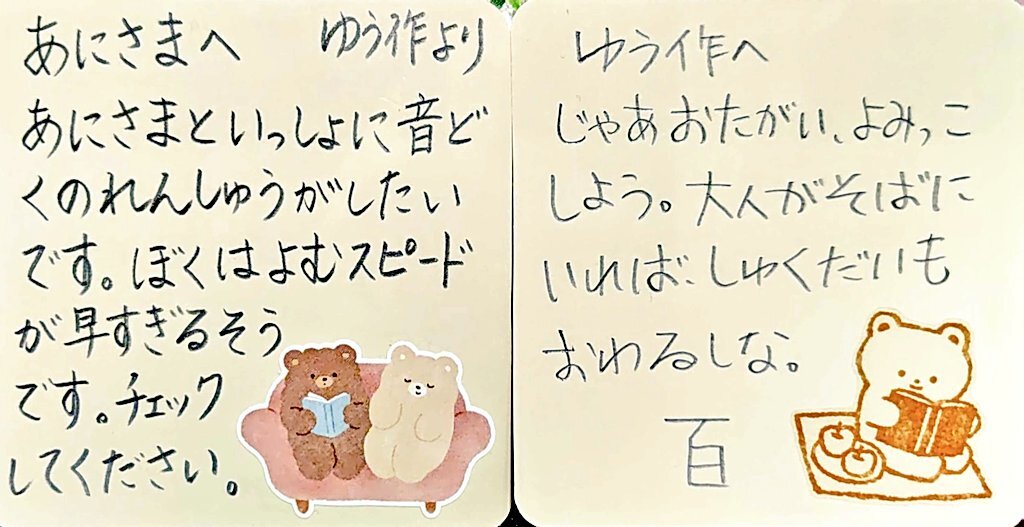 あにさまへ ゆう作より
あにさまといっしょに音ど
くのれんしゅうがしたい
です。ぼくはよむスピード
が早すぎるそう
です。チェック
してください。
ゆう作へ
じゃあおたがい、よみっこ
しよう。大人がそばに
いれば、しゅくだいも
おわるしな。
百